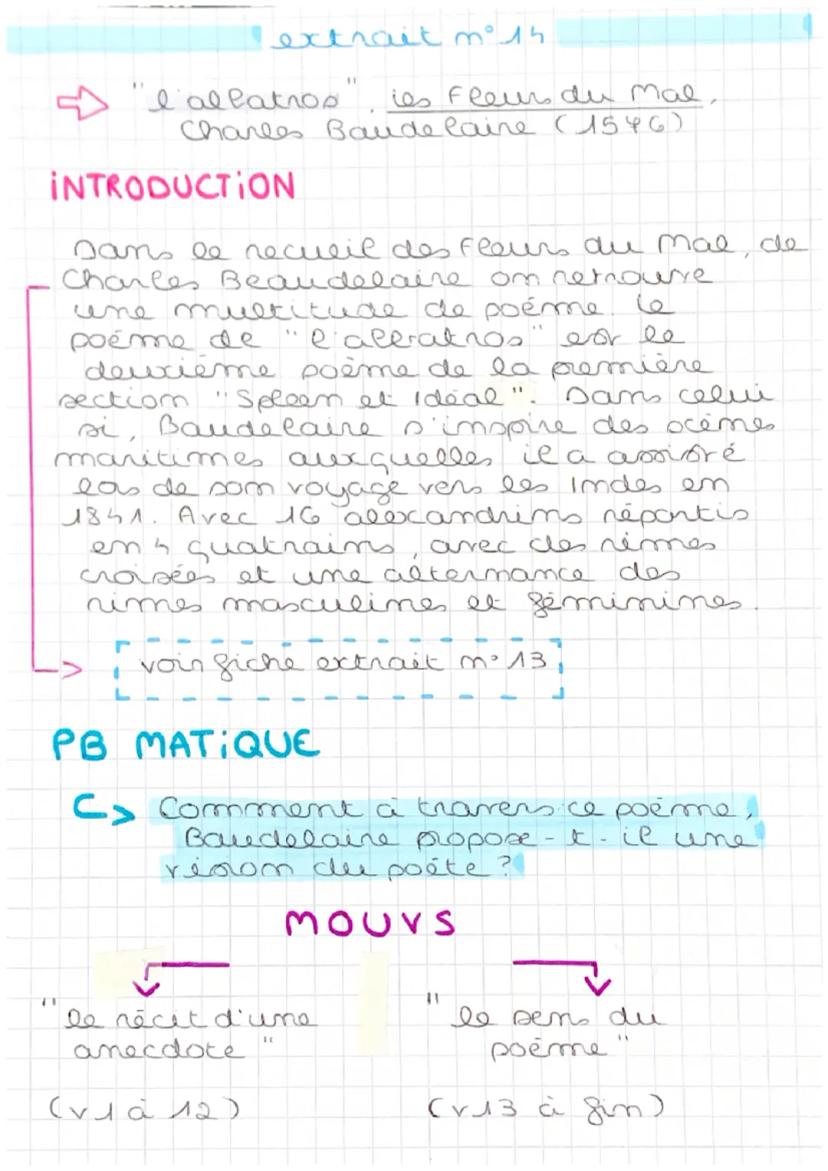 extrait n° 14
"l'albatros", les Fleurs du Mal,
Charles Baudelaire (1546)
INTRODUCTION
Dans le recueil des Fleurs du Mal, de
Charles Beaudelaire on retrouve
une multitude de poéme. Le
poéme de "l'albatros" est le
deuxième poème de la première
section "Spleen et Idéal". Dans celui
si, Baudelaire s'inspire des scènes
maritimes auxquelles il a assisté
lors de son voyage vers les Indes en
1841. Avec 16 alexandrins répartis
en 4 quatrains, avec des rimes
croisées et une alternance des
rimes masculines et féminines.
voir fiche extrait n° 13
PB MATIQUE
Comment à travers ce poéme,
Baudelaire propose-t-il une
vision du poéte ?
MOUVS
"le récit d'une
anecdote"
(v1 à 12)
"le sens du
poéme"
(v13 à fin)